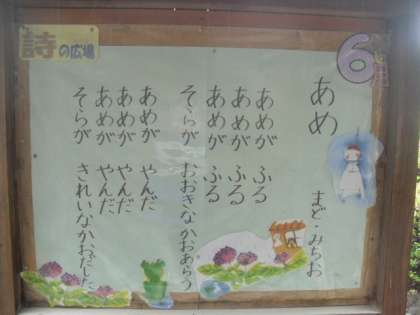 詩の広場
6月
あめ
まど・みちお
あめが ふる
あめが ふる
あめが ふる
そらが おおきなかおあらう
あめが やんだ
あめが やんだ
あめが やんだ
そらが きれいなかおだした